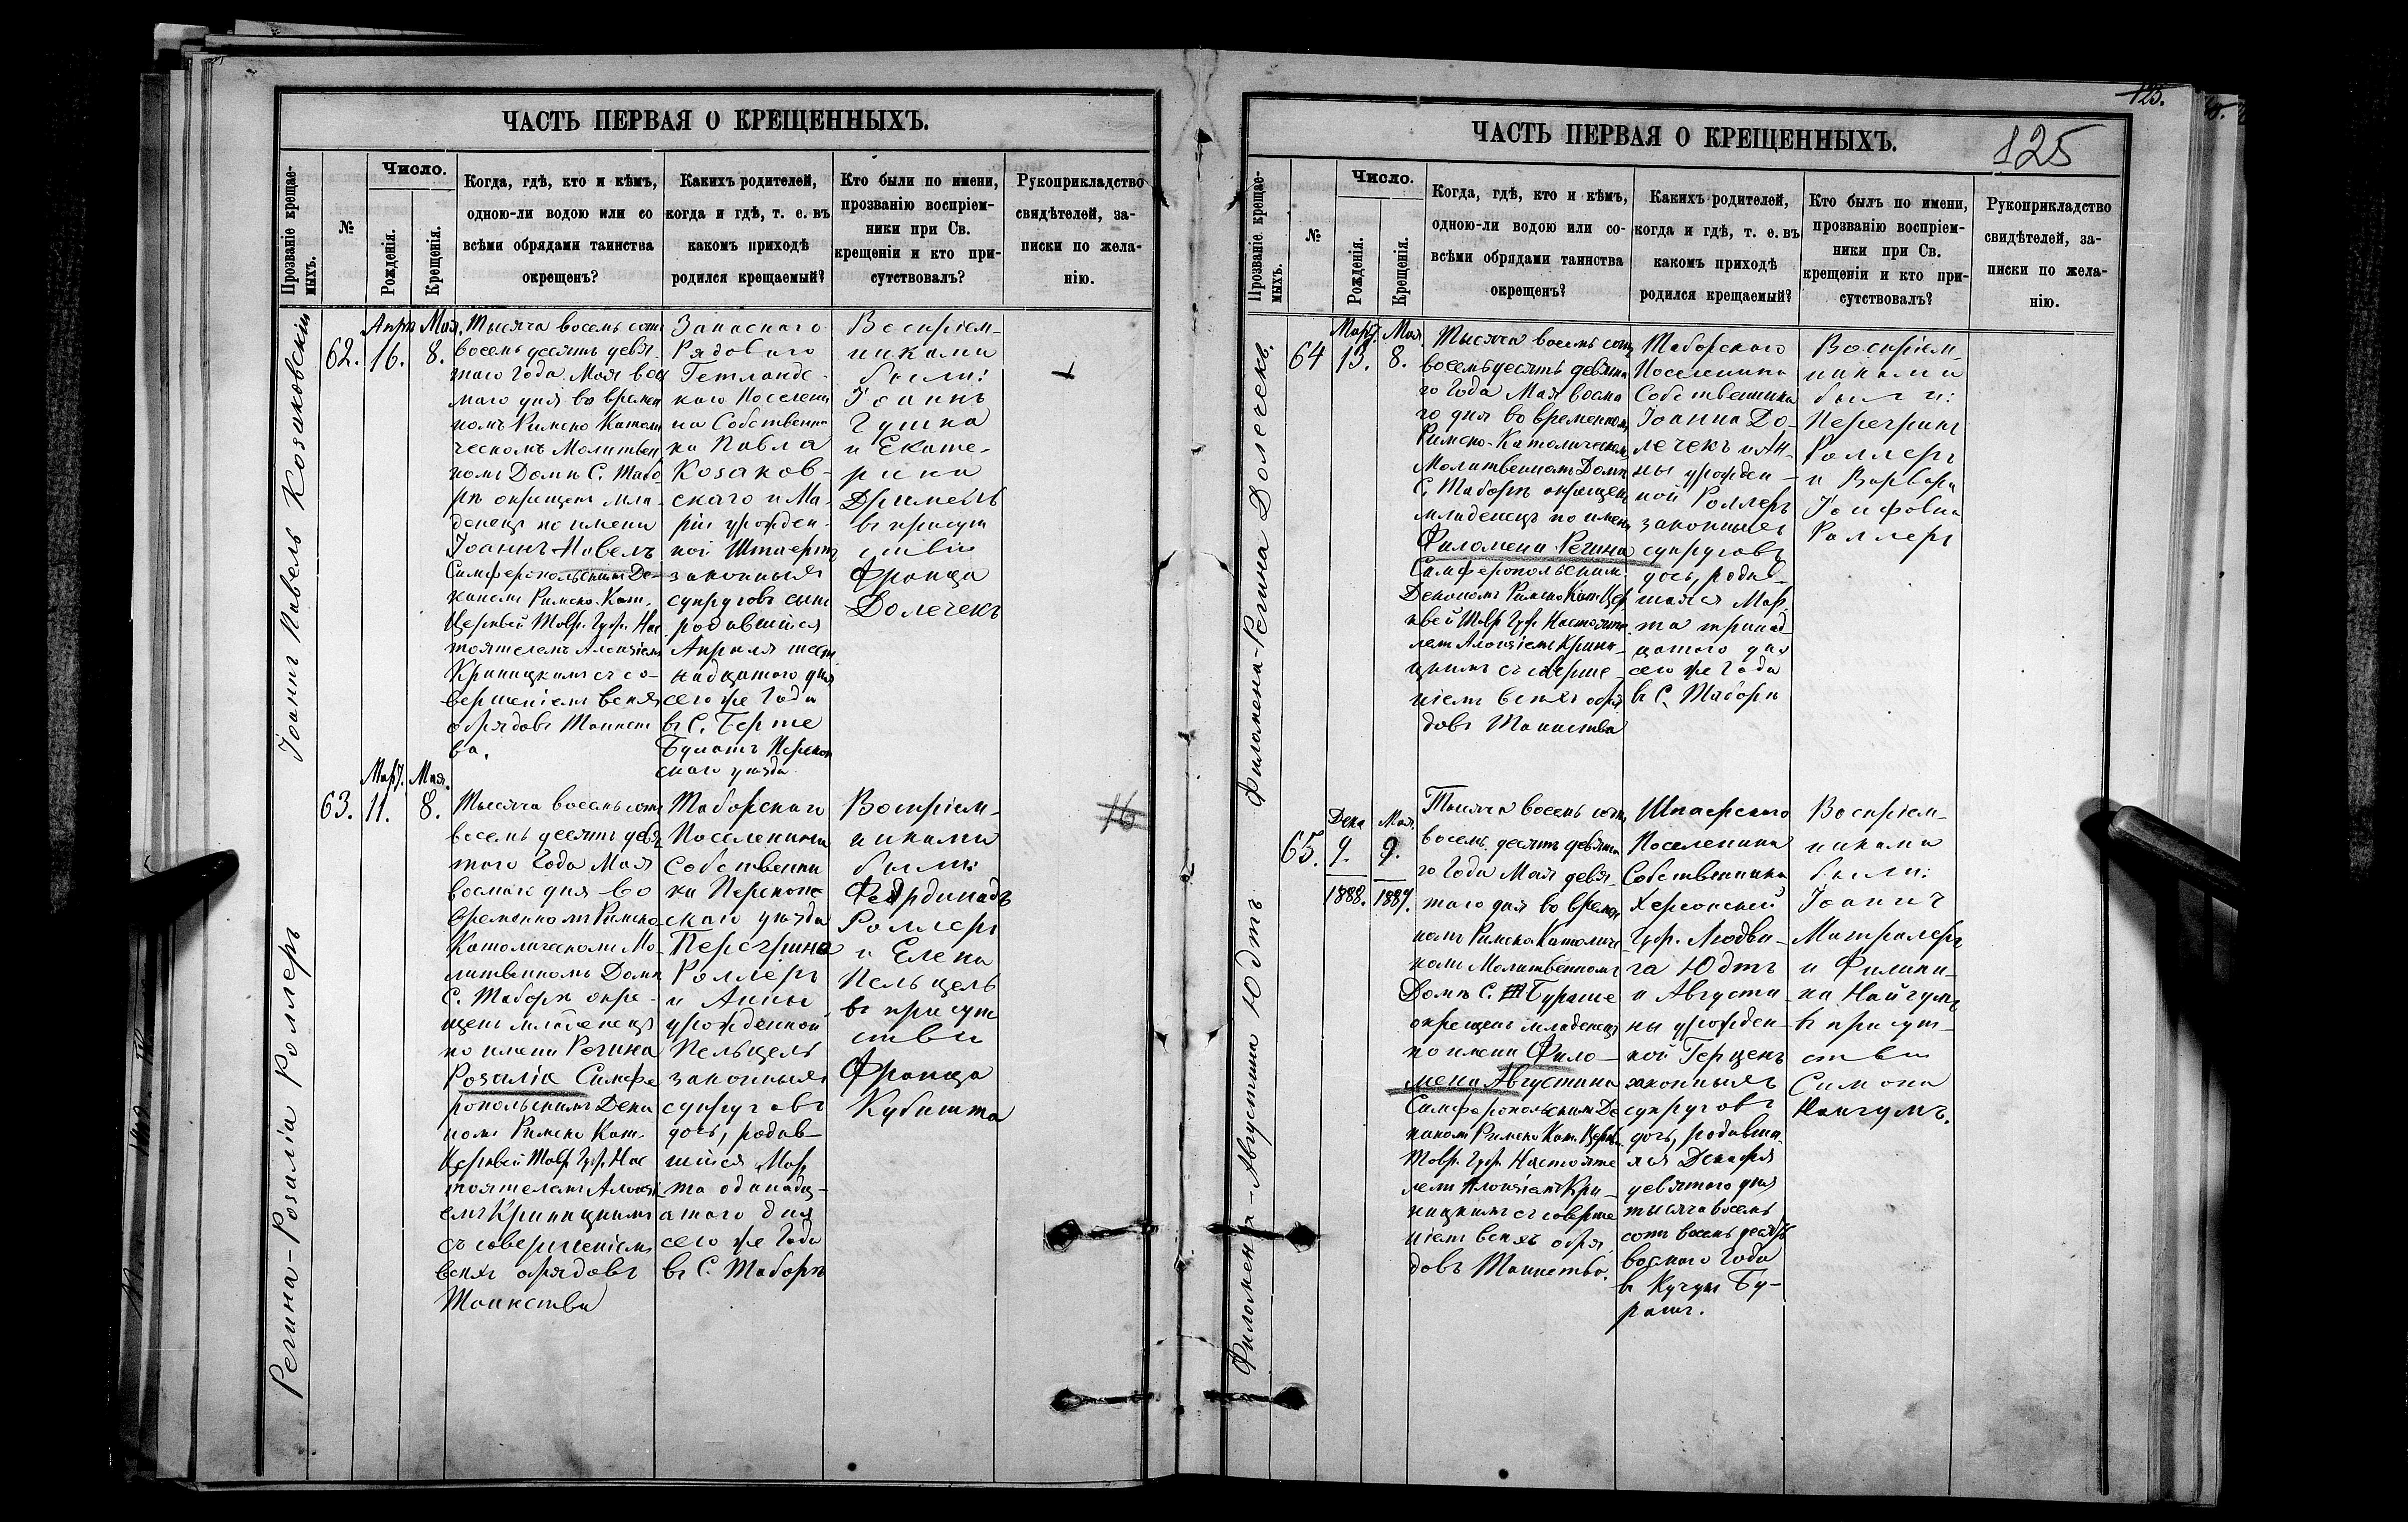 ЧАСТЬ ПЕРВАЯ О КРЕЩЕННЫХЪ.
Прозваніе крещае-
мыхъ.
№
Число.
Рожденія.
Крещенія.
Когда, гдѣ, кто и кѣмъ,
одною-ли водою или со
всѣми обрядами таинства
окрещенъ?
Какихъ родителей,
когда и гдѣ, т. е. въ
какомъ приходѣ
родился крещаемый?
Кто были по имени,
прозванію воспріем-
ники при Св.
крещеніи и кто при-
сутствовалъ?
Рукоприкладство
свидѣтелей, за-
писки по жела-
нію.
Іоаннъ Павелъ Козаковскій
62.
Апрѣ
16.
Мая.
8.
Тысяча восемь сотъ
восемьдесятъ девя
таго Года Мая вос
маго дня во времен
номъ Римско Катол
ческомъ Молитвен
номъ Домѣ С. Табо
рѣ окрещенъ мла-
денецъ по имени
Іоаннъ Павелъ
Симферопольскимъ Де-
каномъ Римско-Кат.
Церквей Тавр. Губ. Нас
тоятелемъ Алоизіемъ
Криницкимъ съ со-
вершеніемъ всѣхъ
обрядовъ Таинст
ва.
Запаснаго
Рядоваго
Гетландс-
каго Поселени
на Собственни
ка Павла
Козаков-
скаго и Ма-
ріи урожден-
ной Штаертъ
законныхъ
супруговъ сынъ
родившійся
Апрѣля шест
надцатаго дня
сего же Года
въ С. Герте
Булатъ Перекоп
скаго уѣзда
Воспріем-
никами
были:
Іоаннъ
Гушка
и Екате-
рина
Дримель
въ присут
ствіи
Франца
Долечекъ
Регина-Розалія Роллеръ
63.
Март.
11.
Мая.
8.
Тысяча восемь сотъ
восемьдесятъ девя
таго Года Мая
восмаго дня во
временномъ Римско-
Католическомъ Мо-
литвенномъ Домѣ
С. Таборѣ окре-
щенъ младенецъ
по имени Регина
Розалія Симфе
ропольскимъ Дека
номъ Римско Кат.
Церквей Тавр. Губ. Нас
тоятелемъ Алоизі
емъ Криницкимъ
съ совершеніемъ
всѣхъ обрядовъ
Таинства
Таборскаго
Поселенина
Собственни
ка Перекопс
скаго уѣзда
Перегрина
Роллеръ
и Анны
урожденной
Пельцель
законныхъ
супруговъ
дочь, родив-
шійся Мар
та одинадц-
атаго дня
сего же Года
въ С. Таборѣ
Воспріем-
никами
были:
Фердинадъ
Роллеръ
и Елена
Пельцель
въ присут
ствіи
Франца
Кубишта
16
125.
125
ЧАСТЬ ПЕРВАЯ О КРЕЩЕННЫХЪ.
Прозваніе крещае-
мыхъ.
№
Число.
Рожденія.
Крещенія.
Когда, гдѣ, кто и кѣмъ,
одною-ли водою или со-
всѣми обрядами таинства
окрещенъ?
Какихъ родителей,
когда и гдѣ, т. е. въ
какомъ приходѣ
родился крещаемый?
Кто былъ по имени,
прозванію воспріем-
ники при Св.
крещеніи и кто при-
сутствовалъ?
Рукоприкладство
свидѣтелей, за-
писки по жела-
нію.
Филомена-Регина Долечекъ.
64
Март.
13.
Мая
8.
Тысяча восемь сотъ
восемьдесятъ девята
го Года Мая восма
го дня во временномъ
Римско-Католическомъ
Молитвенномъ Домѣ
С. Таборѣ окрещенъ
младенецъ по имени
Филомена Регина
Симферопольскимъ
Деканомъ Римско Кат. Цер
квей Тавр. Губ. Настояте
лемъ Алоизіемъ Крини-
цкимъ съ соверше-
ніемъ всѣхъ обря
довъ Таинства
Таборскаго
Поселенина
Собственника
Іоанна До-
лечекъ и Ан-
ны урожден-
ной Роллеръ
законныхъ
супруговъ
дочь, родив-
шаяся Мар
та тринад
цатаго дня
сего же Года
въ С. Таборѣ
Воспріем-
никами
были:
Перегринъ
Роллеръ
и Варвара
Іосифовна
Роллеръ
Филомена-Августина Юдтъ
65.
Дека
9.
1888.
Мая.
9.
1889.
Тысяча восемь сотъ
восемьдесятъ девята
го Года Мая девя-
таго дня во времен
номъ Римско Католиче
комъ Молитвенномъ
Домѣ С. Бураше
окрещенъ младенецъ
по имени Фило-
мена Августина
Симферопольскимъ Де
каномъ Римско Кат. Церкв.
Тавр. Губ. Настояте
лемъ Алоизіемъ Кри-
ницкимъ съ соверше
ніемъ всѣхъ обря
довъ Таинства.
Шпаерскаго
Поселенина
Собственника
Херсонской
Губ. Людви-
га Юдтъ
и Августи
ны урожден-
ной Герценъ
законныхъ
супруговъ
дочь, родивша-
яся Декабря
девятаго дня
тысяча восемь
сотъ восемьдесятъ
восмаго Года
въ Кучук Бу-
рашъ.
Воспріем-
никами
были:
Іоаннъ
Матралеръ
и Филипи-
на Найгумъ
въ присут-
ствіи
Симона
Наигумъ.